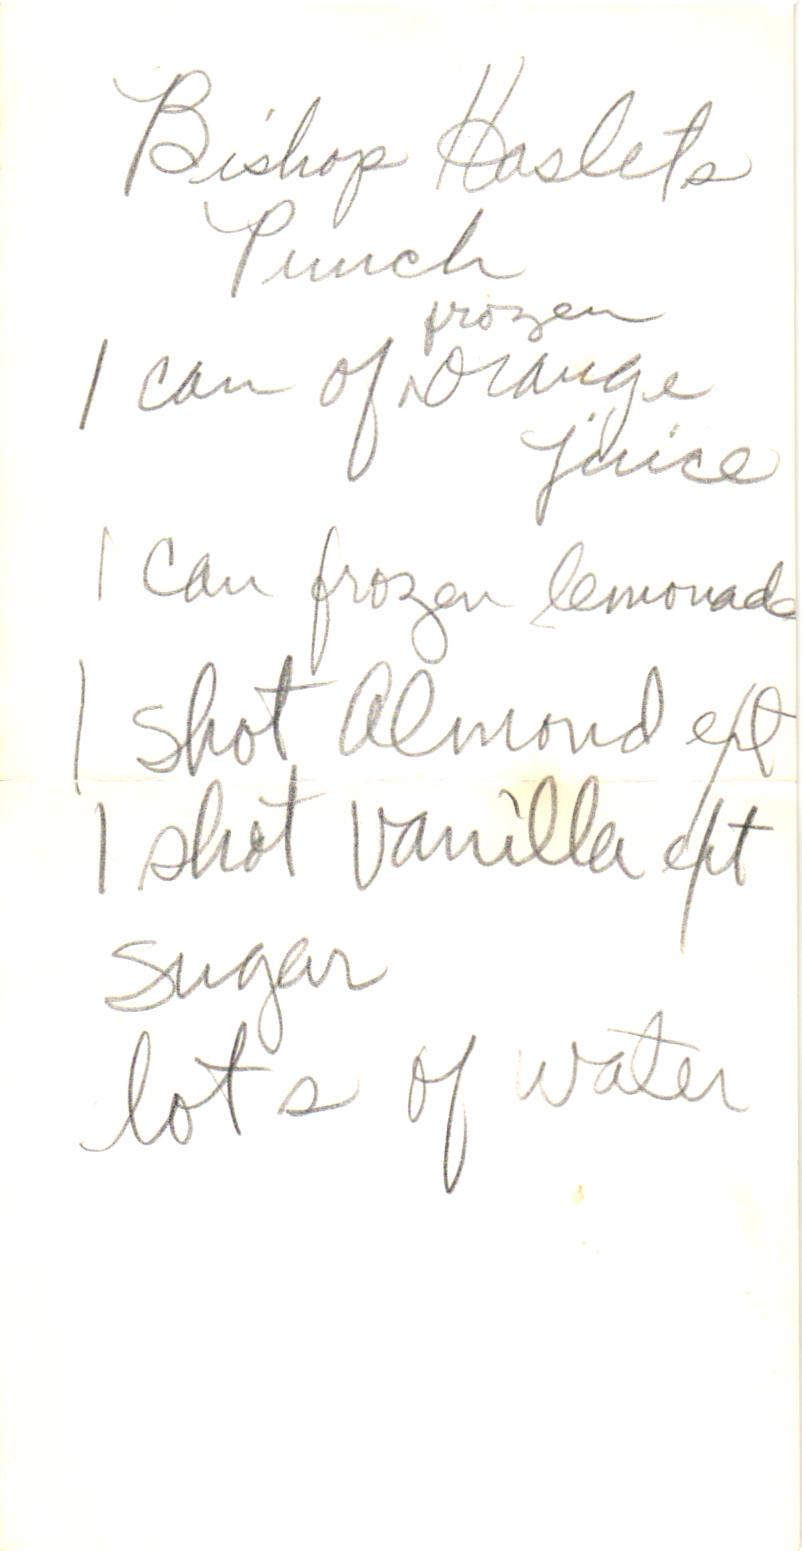 Bishop Haslets
Punch
1 can of frozen orange
juice
1 can frozen lemonade
1 shot Almond ept
1 shot vanilla ept
sugar
lots of water